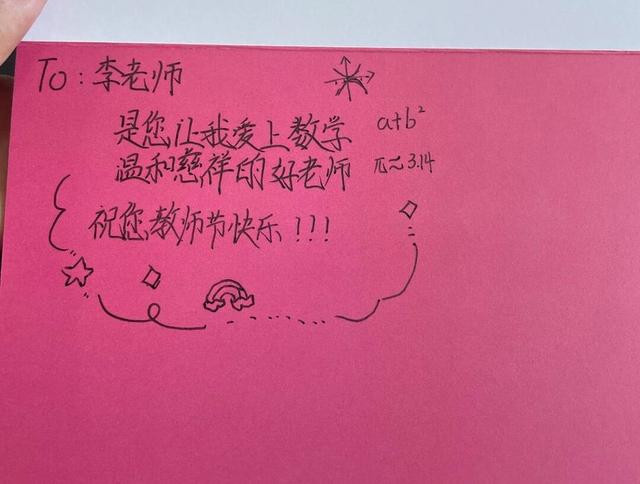 To：李老师
是您让我爱上数学
a+b²
温和慈祥的好老师
π≈3.14
祝您教师节快乐！！！